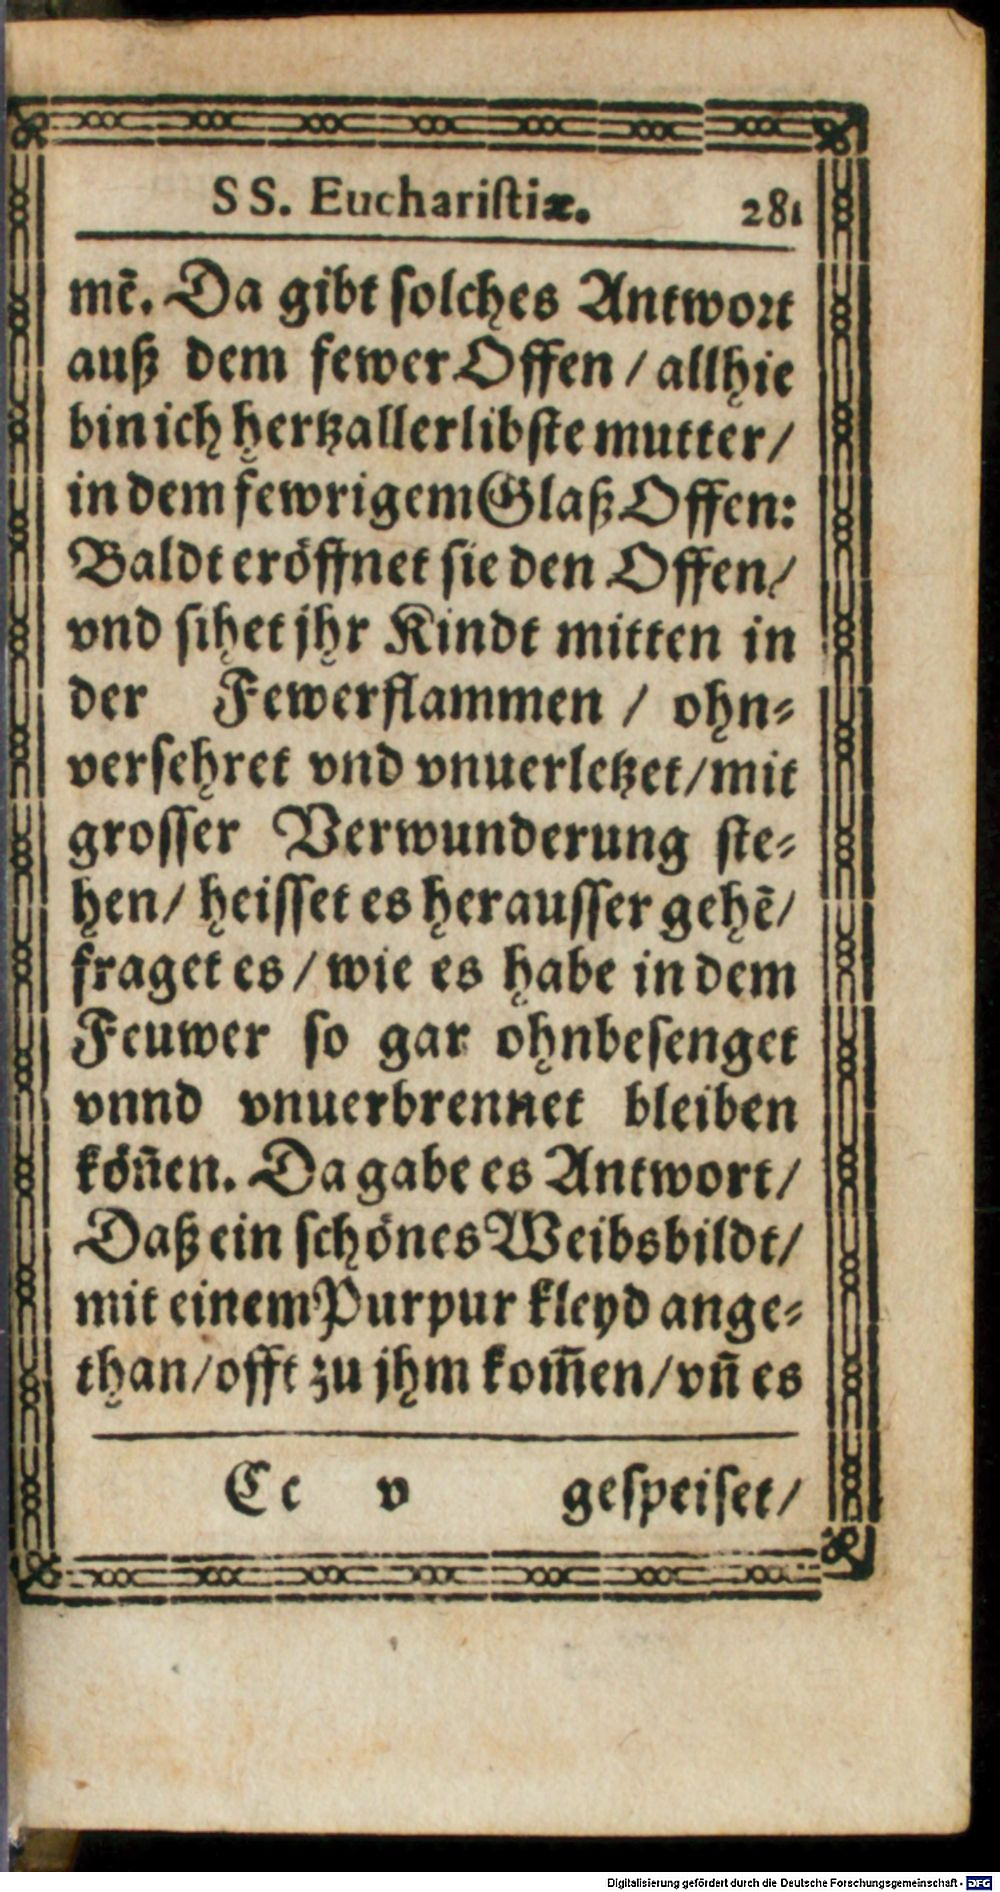 SS. Euchariſtiæ. 281
mẽ. Da gibt ſolches Antwort
auß dem fewer Offen / allhie
bin ich hertzallerlibſte mutter /
in dem fewrigem Glaß Offen:
Baldt eröffnet ſie den Offen /
vnd ſihet jhr Kindt mitten in
der Fewerflammen / ohn⸗
verſehret vnd vnuerletzet / mit
groſſer Verwunderung ſte⸗
hen / heiſſet es herauſſer gehẽ /
fraget es / wie es habe in dem
Feuwer ſo gar ohnbeſenget
vnnd vnuerbrennet bleiben
köñen. Da gabe es Antwort /
Daß ein ſchönes Weibsbildt /
mit einem Purpur kleyd ange⸗
than / offt zu jhm kom̃en / vñ es
Cc v geſpeiſet /
Digitalisierung gefördert durch die Deutsche Forschungsgemeinschaft - DFG